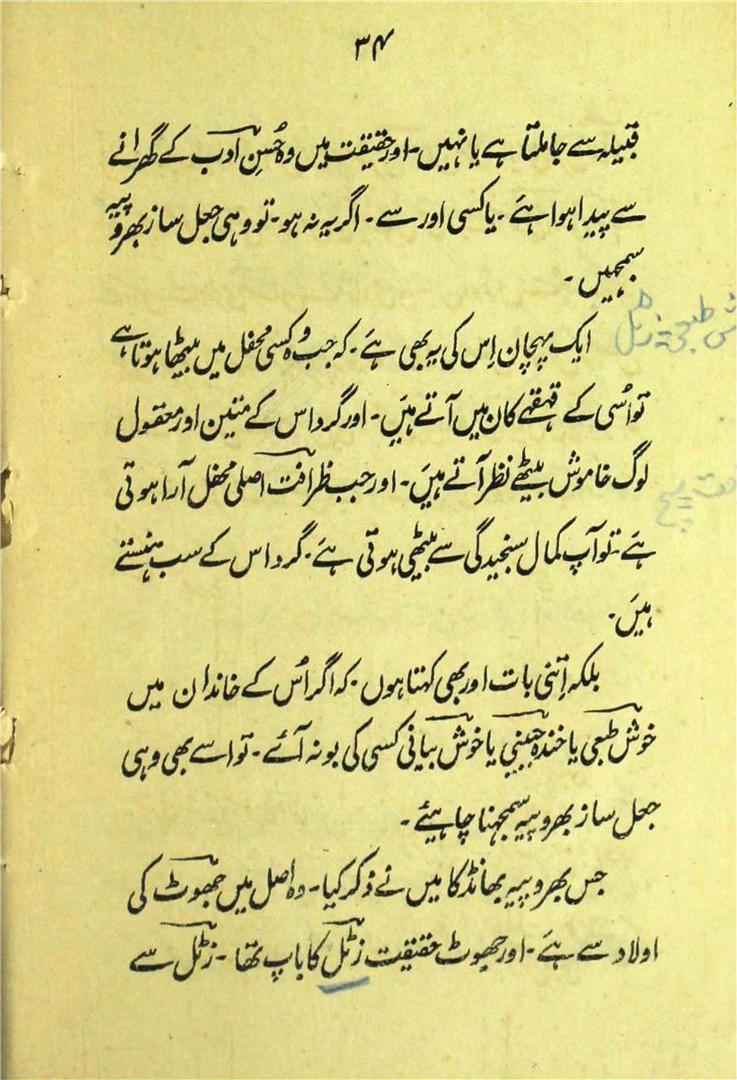 ۳۴
قبیلہ سے جا ملتا ہے یا نہیں۔ اور حقیقت میں وہ حُسنِ ادب کے گھرانے
سے پیدا ہوا ہَے۔ یا کسی اور سے۔ اگر یہ نہ ہو۔ تو وہی جعل ساز بھروپیہ
سمجہیں۔
ایک پہچان اِس کی یہ بھی ہَے۔ کہ جب وُہ کسی محفل میں بیٹھا ہوتا ہے
تو اُسی کے قہقہے کان میں آتے ہیَں۔ اور گرد اس کے متین اور معقول
لوگ خاموش بیٹھے نظر آتے ہیَں۔ اور جب ظرافت اصلی محفل آرا ہوتی
ہَے۔ تو آپ کمال سنجیدگی سے بیٹھی ہوتی ہَے۔ گرد اس کے سب ہنستے
ہیَں۔
بلکہ اِتنی بات اور بھی کہتا ہوں۔ کہ اگر اُس کے خاندان میں
خوش طبعی یا خندہ جبینی یا خوش بیانی کسی کی بو نہ آئے۔ تو اسے بھی وہی
جعل ساز بھروپیہ سمجہنا چاہیئے۔
جس بھروپیہ بھانڈ کا میں نے ذکر کیا۔ وہ اصل میں جھوٹ کی
اولاد سے ہَے۔ اور جھوٹ حقیقت زٹل کا باپ تھا۔ زٹل سے